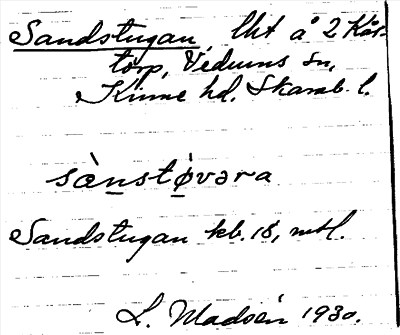 Sandstugan, lht å 2 Kårs-
torp, Vedums sn,
Kinne hd. Skarab. l.
sàn̲stǿ̲vəra
Sandstugan kb. 18, mtl.
L. Madsén 1930.